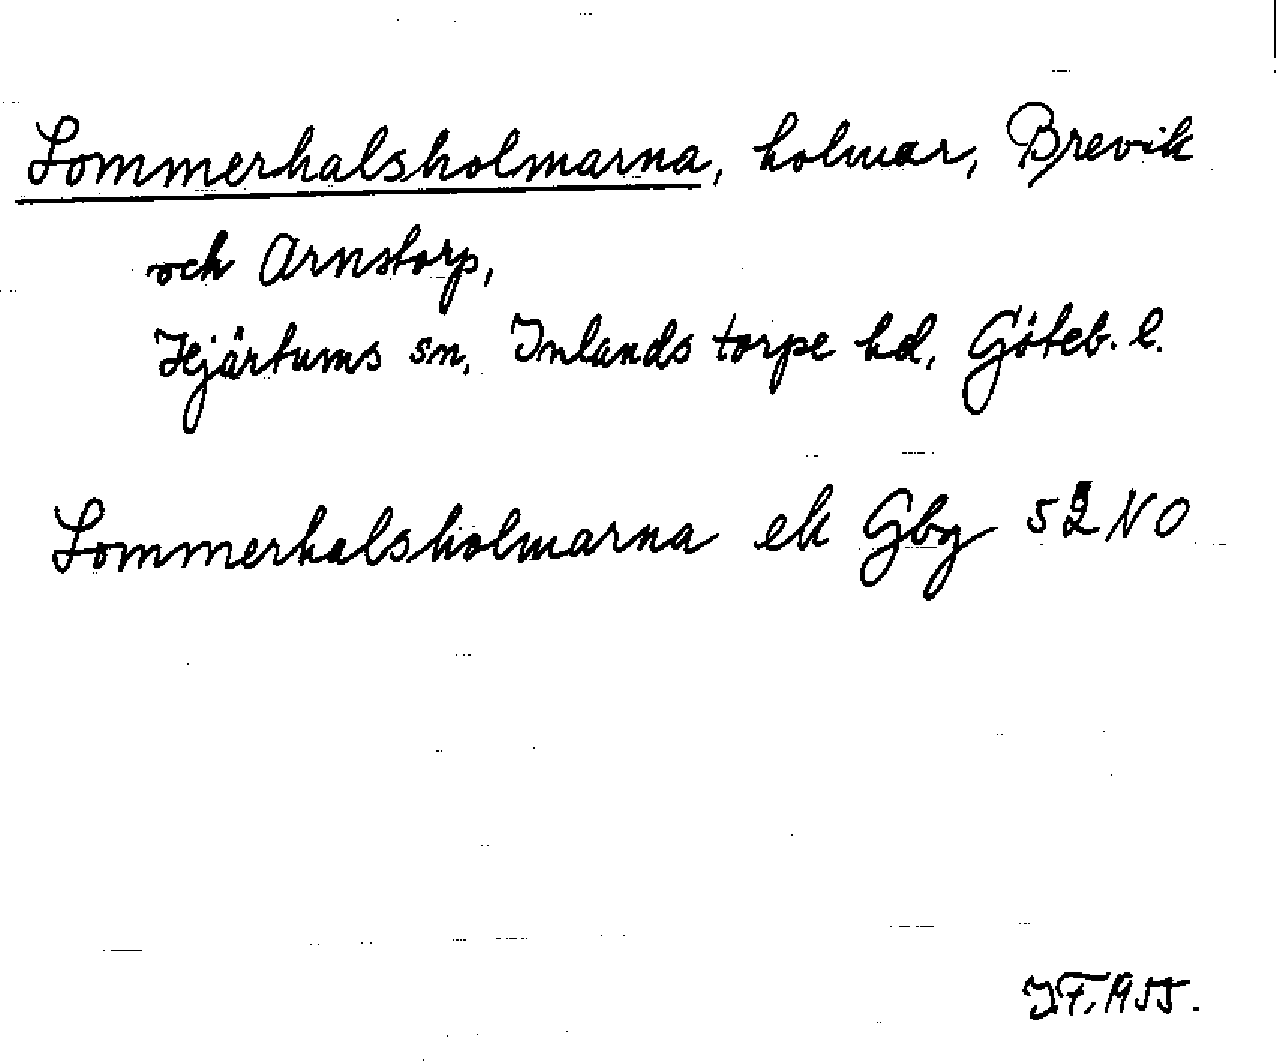 Lommerhalsholmarna, holmar, Brevik
och Arnstorp,
Hjärtums sn, Inlands torpe hd, Göteb. l.
Lommerhalsholmarna ek Gbg 52 NO
IF, 1955.